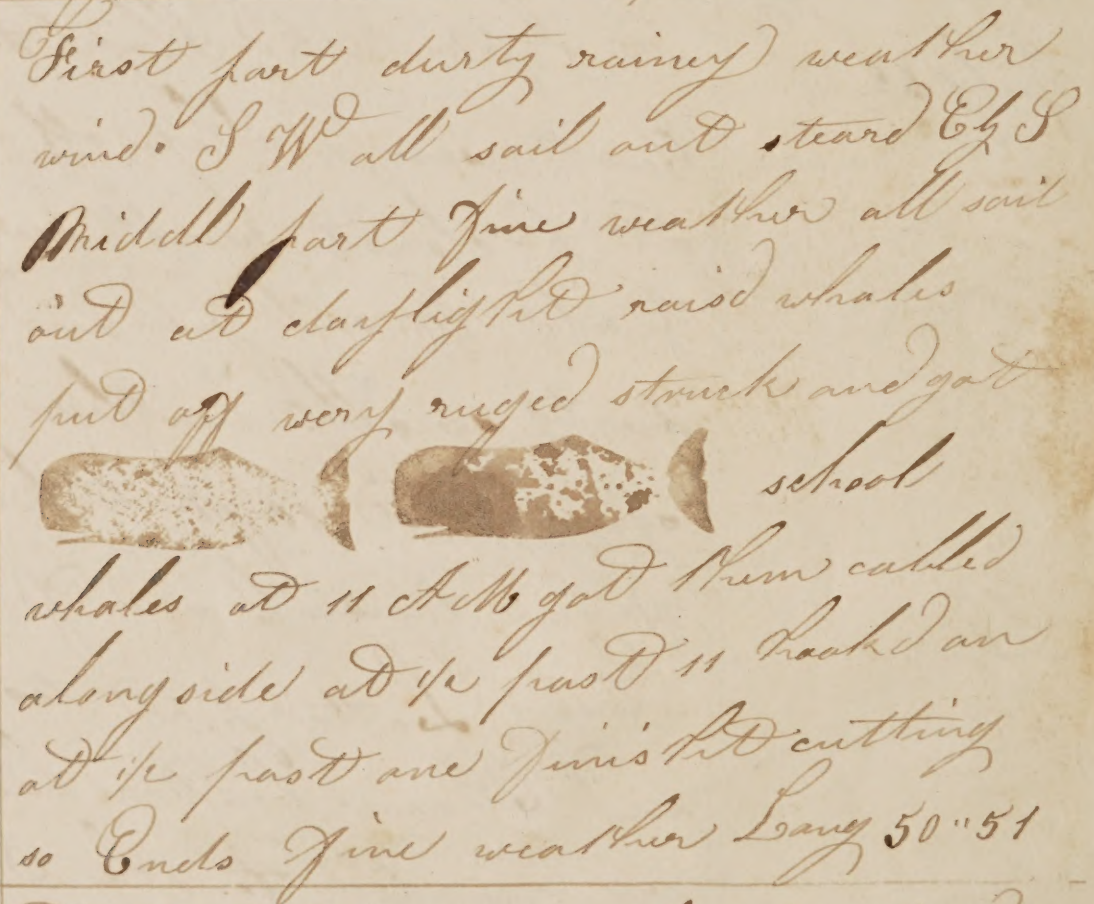 First part durty rainey weather
wind. S Wd all sail out steard EbS
Middl part fine weather all sail
out at daylight raisd whales
put off very ruged struck and got
school
whales at 11 A M got them cabled
alongside at 1/2 past 11 hookd on
at 1/2 past one finisht cutting
so Ends fine weather Long 50"51